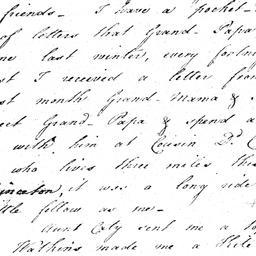 friends - I have a pocket-
of letters that Grand-Papa
me last winter, every fortn
st I received a letter from
st month Grand-Mama &
ect Grand-Papa & spend a
with him at Cousin D. C
who lives three miles th
inceton, it was a long ride
ttle fellow as me-
Aunt Caty sent me a to
Watkins made me a